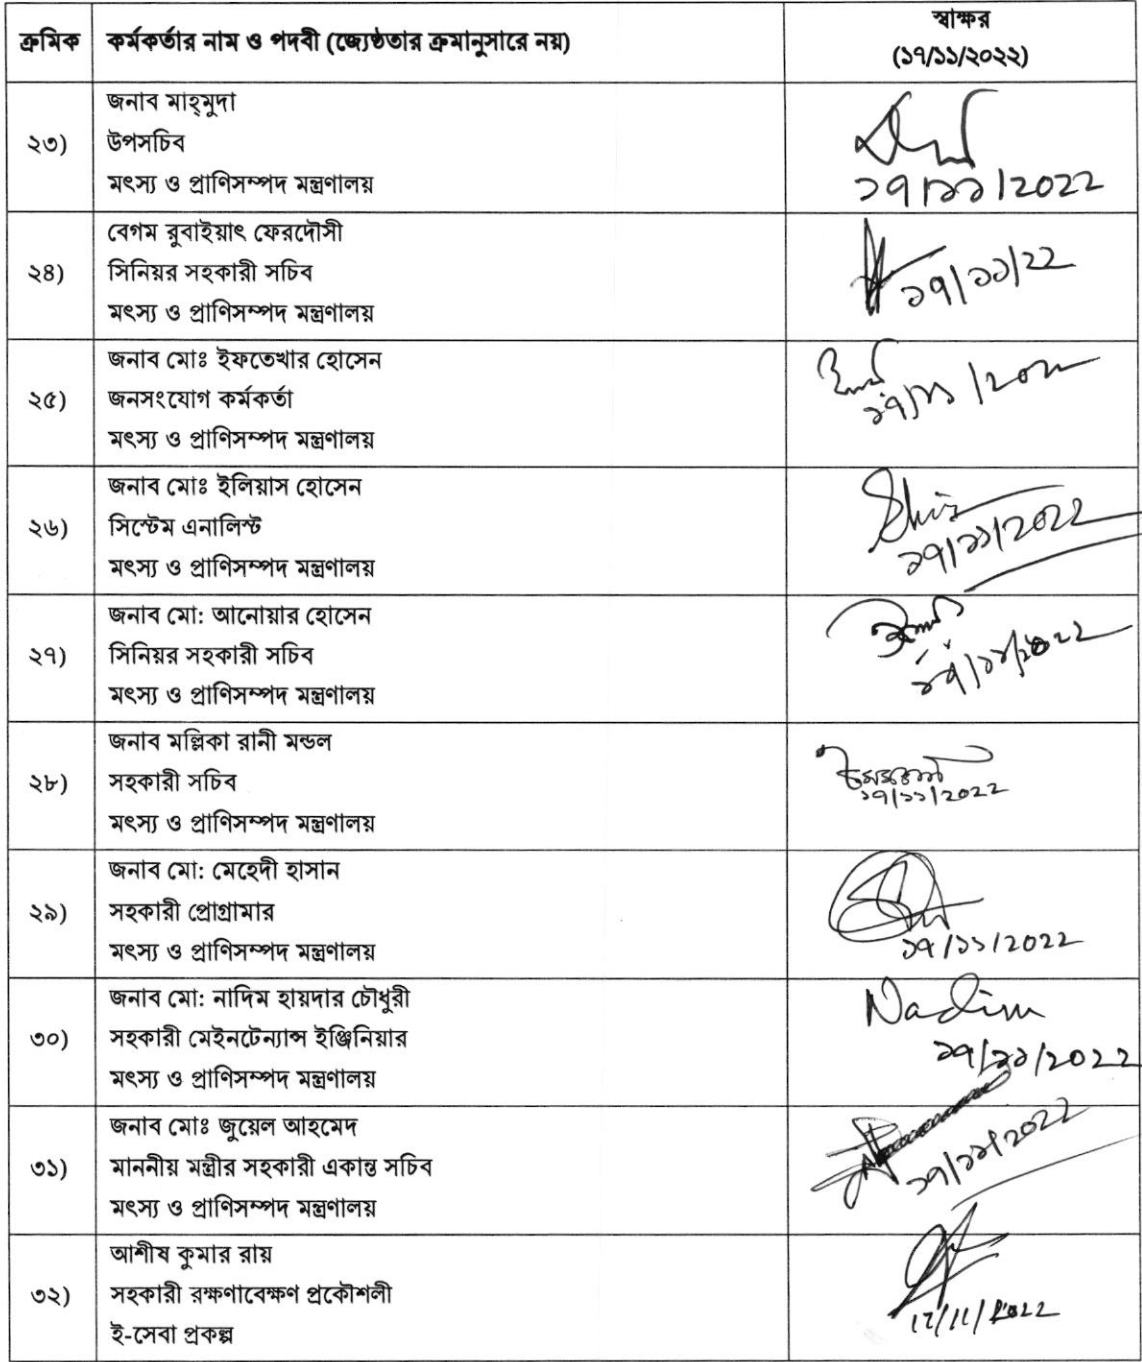 ক্রমিক
কর্মকর্তার নাম ও পদবী (জ্যেষ্ঠতার ক্রমানুসারে নয়)
স্বাক্ষর
(১৭/১১/২০২২)
২৩)
জনাব মাহ্‌মুদা
উপসচিব
মৎস্য ও প্রাণিসম্পদ মন্ত্রণালয়
১৭/১১/2022
২৪)
বেগম রুবাইয়াৎ ফেরদৌসী
সিনিয়র সহকারী সচিব
মৎস্য ও প্রাণিসম্পদ মন্ত্রণালয়
১৭/১১/22
২৫)
জনাব মোঃ ইফতেখার হোসেন
জনসংযোগ কর্মকর্তা
মৎস্য ও প্রাণিসম্পদ মন্ত্রণালয়
২৬)
জনাব মোঃ ইলিয়াস হোসেন
সিস্টেম এনালিস্ট
মৎস্য ও প্রাণিসম্পদ মন্ত্রণালয়
১৭/১১/2022
২৭)
জনাব মো: আনোয়ার হোসেন
সিনিয়র সহকারী সচিব
মৎস্য ও প্রাণিসম্পদ মন্ত্রণালয়
২৮)
জনাব মল্লিকা রানী মন্ডল
সহকারী সচিব
মৎস্য ও প্রাণিসম্পদ মন্ত্রণালয়
১৭/১১/2022
২৯)
জনাব মো: মেহেদী হাসান
সহকারী প্রোগ্রামার
মৎস্য ও প্রাণিসম্পদ মন্ত্রণালয়
১৭/১১/2022
৩০)
জনাব মো: নাদিম হায়দার চৌধুরী
সহকারী মেইনটেন্যান্স ইঞ্জিনিয়ার
মৎস্য ও প্রাণিসম্পদ মন্ত্রণালয়
Nadim
১৭/১১/2022
৩১)
জনাব মোঃ জুয়েল আহমেদ
মাননীয় মন্ত্রীর সহকারী একান্ত সচিব
মৎস্য ও প্রাণিসম্পদ মন্ত্রণালয়
১৭/১১/2022
৩২)
আশীষ কুমার রায়
সহকারী রক্ষণাবেক্ষণ প্রকৌশলী
ই-সেবা প্রকল্প
17/11/2022